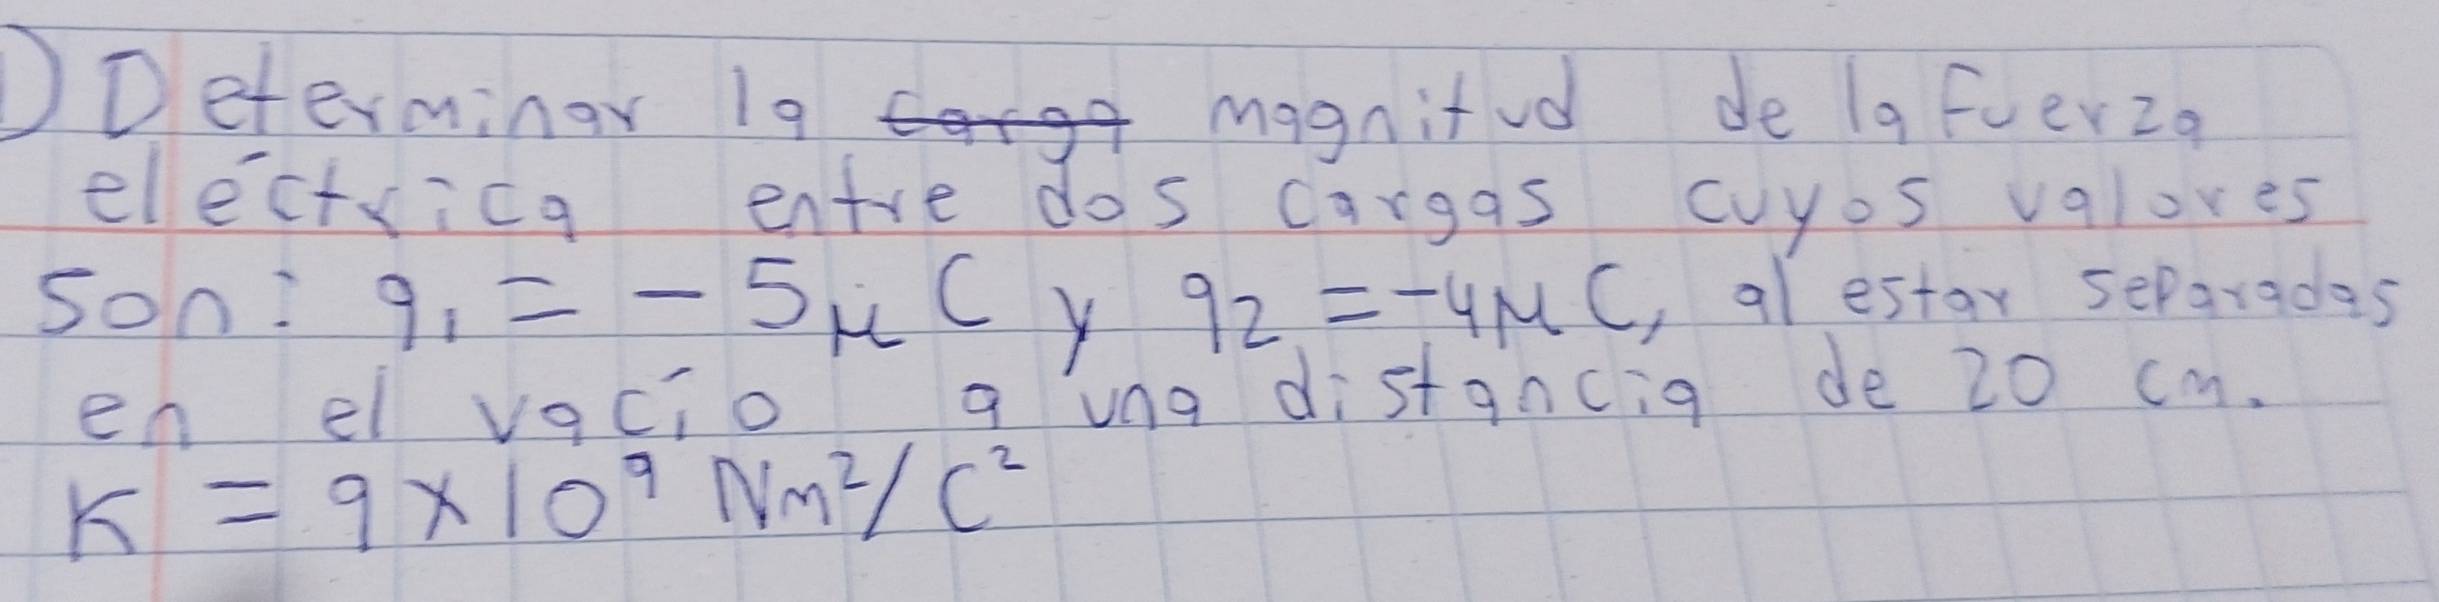 1) Determinar la carga magnitud de la Fuerza
eléctrica entre dos cargas cuyos valores
son: q₁ = -5μC y q₂ = -4μC, al estar separadas
en el vacío a una distancia de 20 cm.
K = 9x10⁹ Nm²/C²